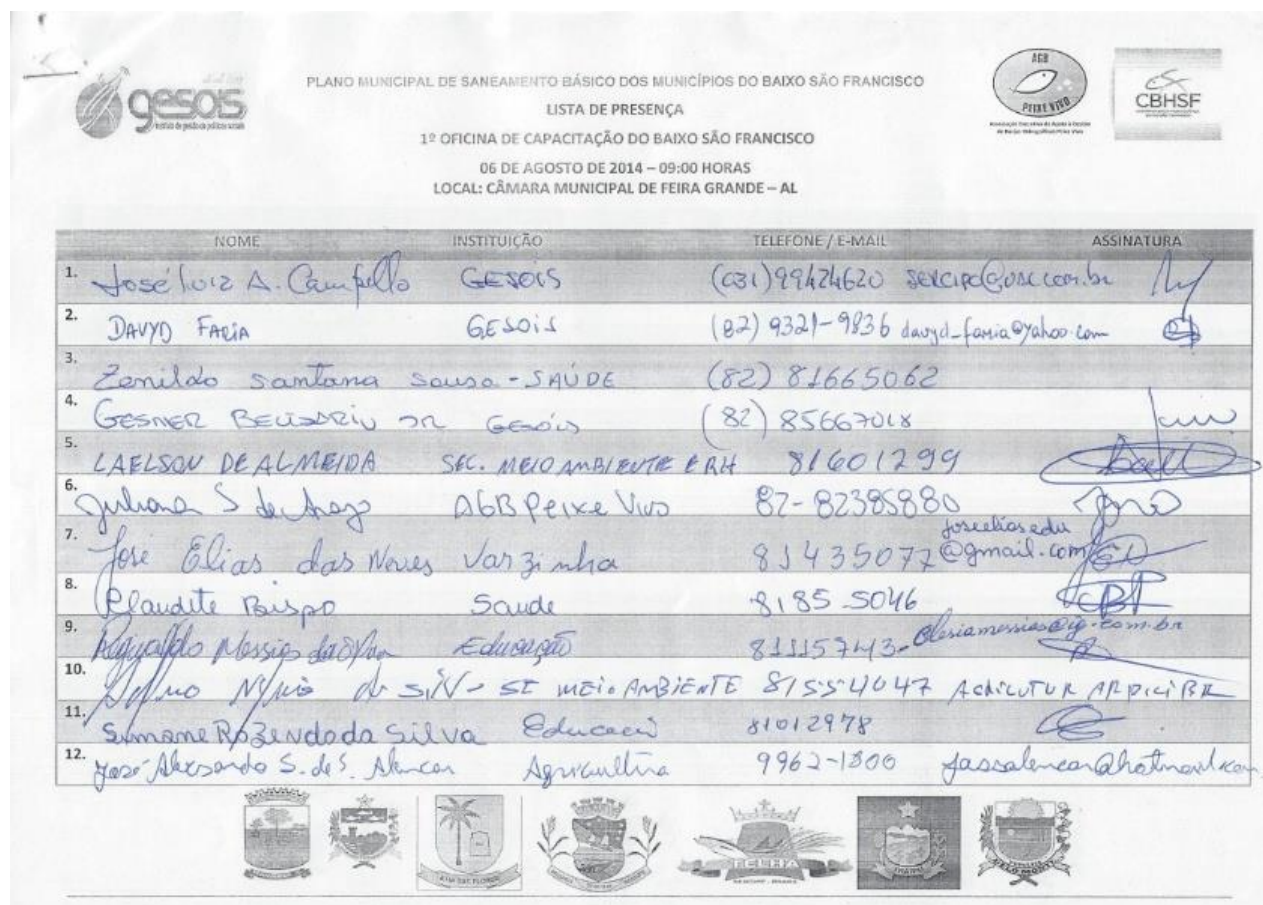 gesois
Instituto de gestão de políticas sociais
PLANO MUNICIPAL DE SANEAMENTO BÁSICO DOS MUNICÍPIOS DO BAIXO SÃO FRANCISCO
LISTA DE PRESENÇA
1º OFICINA DE CAPACITAÇÃO DO BAIXO SÃO FRANCISCO
06 DE AGOSTO DE 2014 – 09:00 HORAS
LOCAL: CÂMARA MUNICIPAL DE FEIRA GRANDE – AL
AGB
PEIXE VIVO
CBHSF
NOME INSTITUIÇÃO TELEFONE / E-MAIL ASSINATURA
1. José Luiz A. Campello GESOIS (031)99424620
2. DAVYD FARIA GESOIS (82) 9321-9836 davyd_faria@yahoo.com
3. Zenildo santana sousa - SAÚDE (82) 81665062
4. GESNER BELISARIO JR GESOIS (82) 85667018
5. LAELSON DE ALMEIDA SEC. MEIO AMBIENTE E RH 81601299
6. Juliana S de Araujo AGB Peixe Vivo 82-82385880
7. José Elias das Neves Varzinha 81435077 joseeliasedu@gmail.com
8. Claudete Bispo Saude 8185-5046
9. Reginaldo Messias da Educação 81115743
10. SE MEIO AMBIENTE 81554047
11. Simone Rozendo da Silva Educacão 81012978
12. José Alexsandro S. de S. Alencar Agricultura 9962-1800 jassalencar@hotmail.com
FELIZ